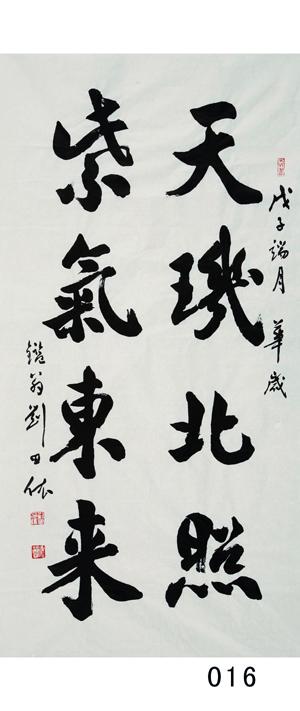 戊子端月 華歲
天璣北照
紫氣東来
翁劉田依
016